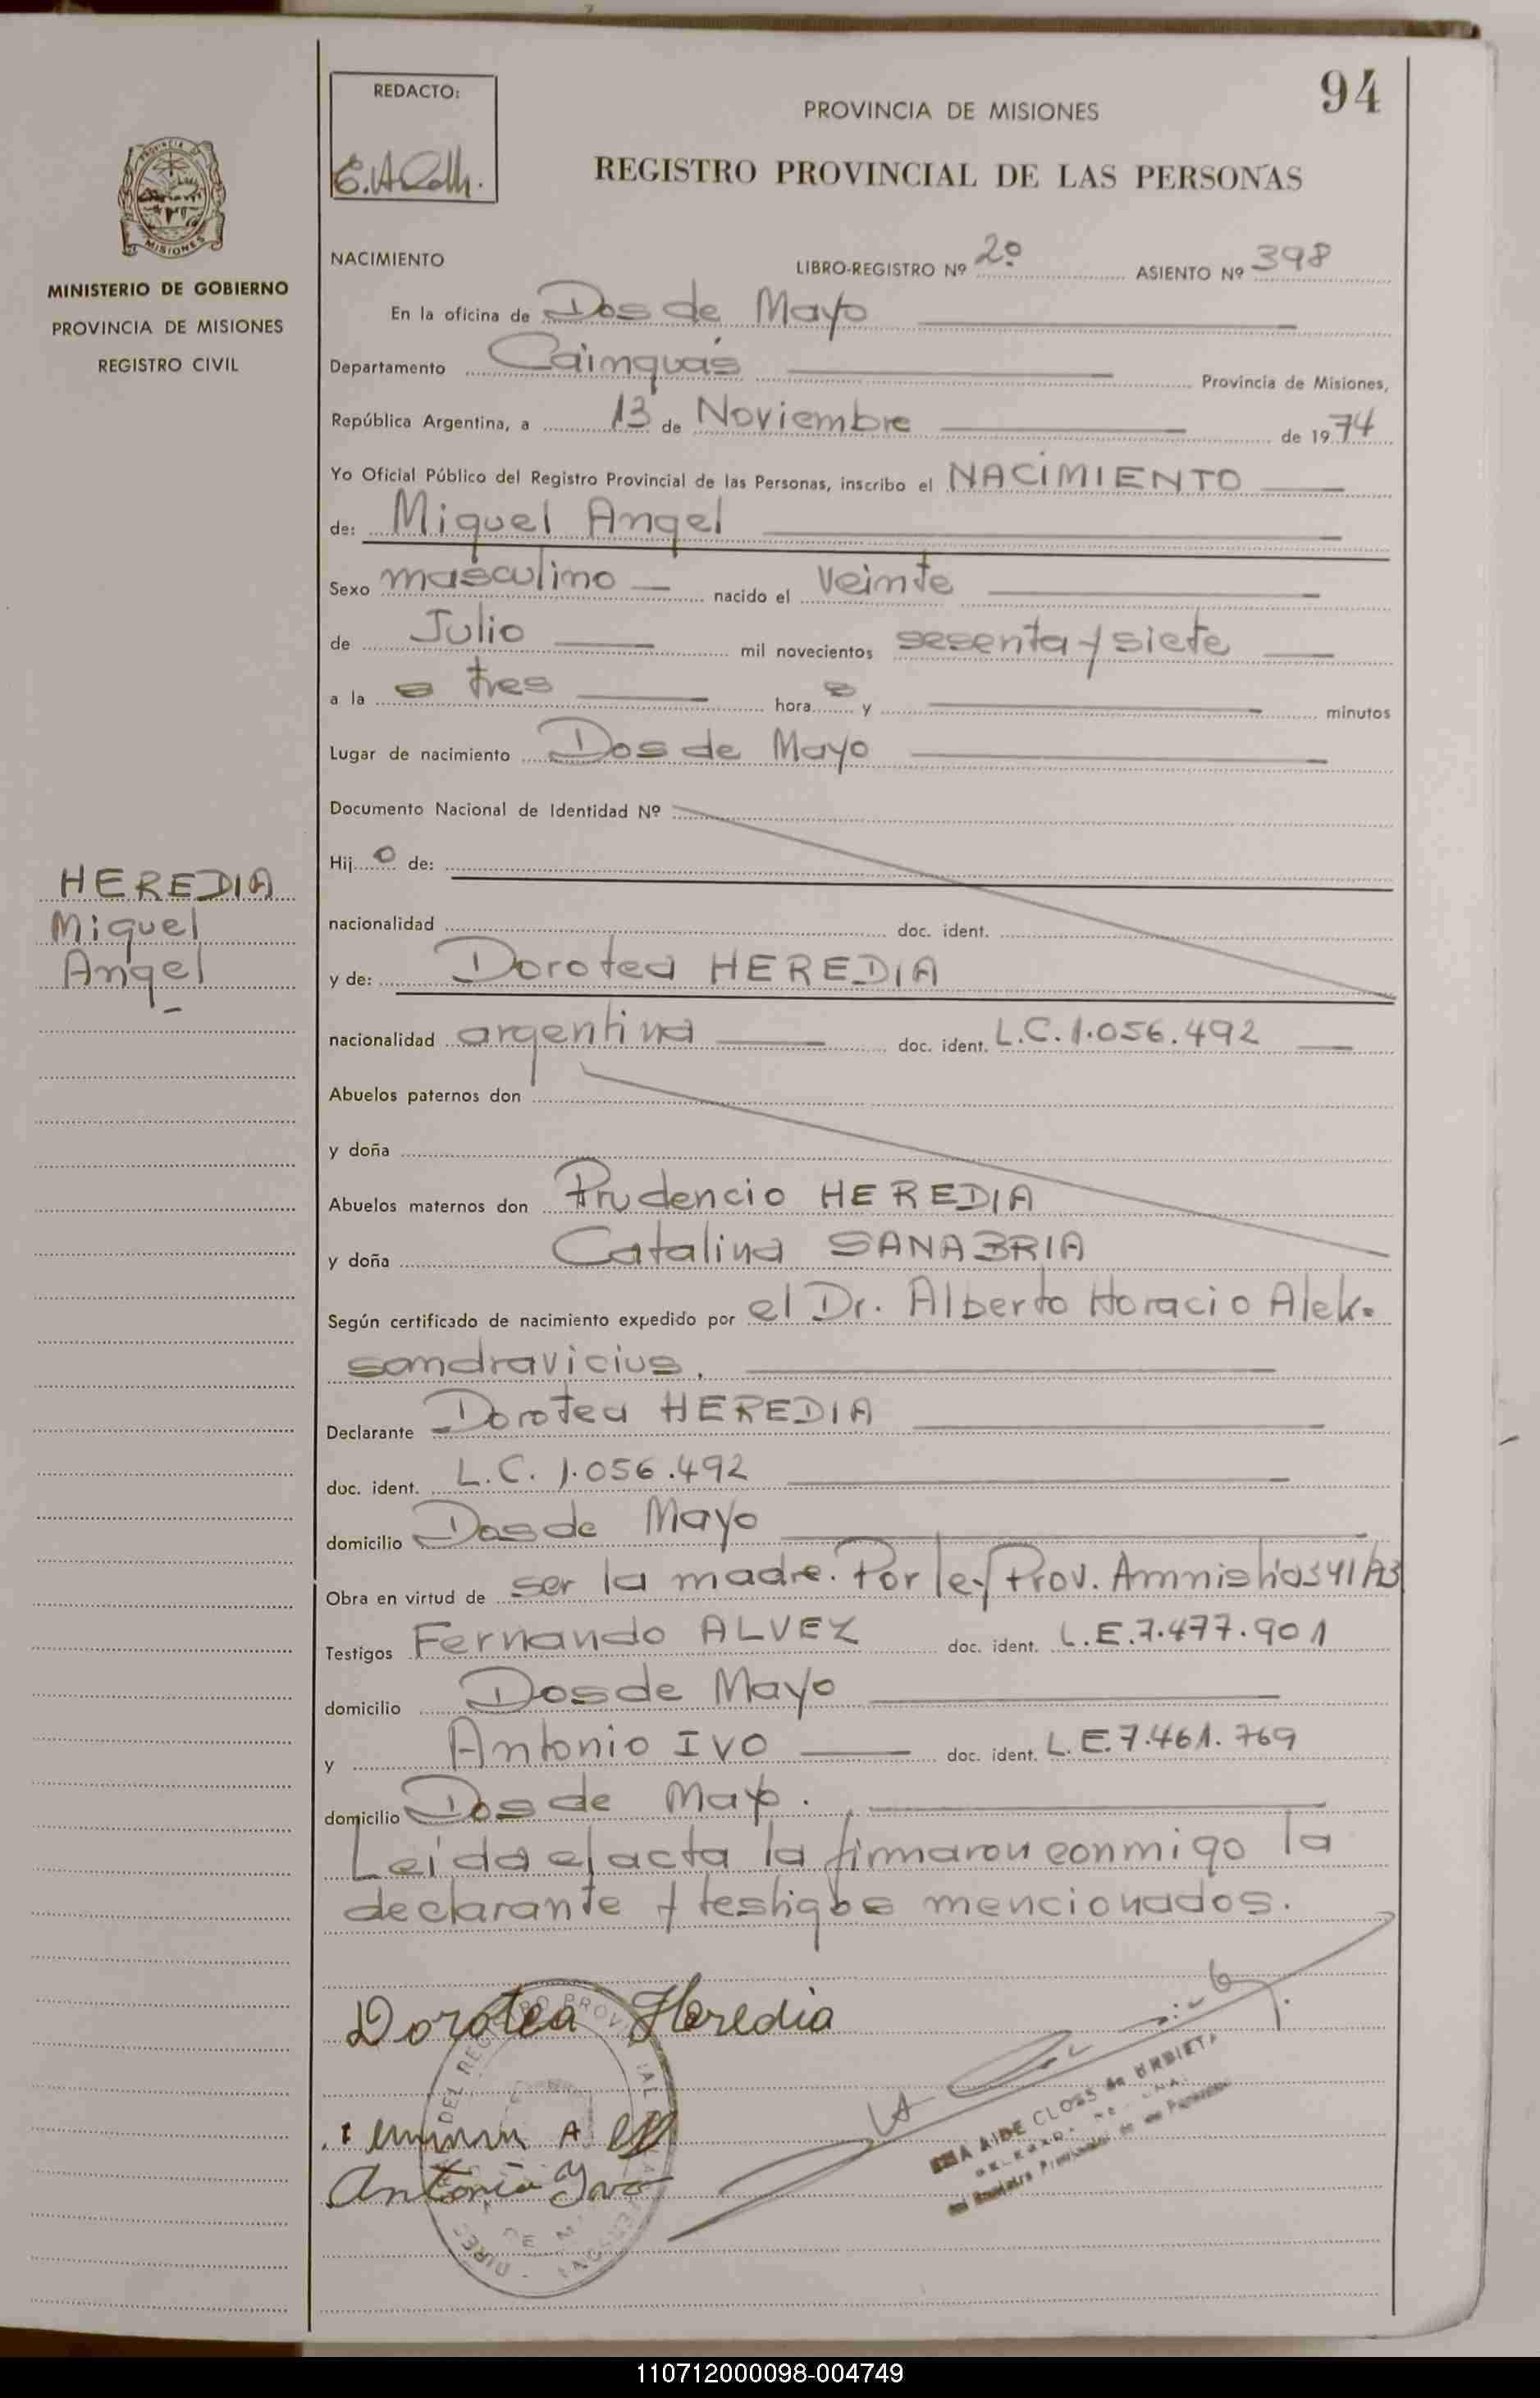 94
REDACTO:
PROVINCIA DE MISIONES
REGISTRO PROVINCIAL DE LAS PERSONAS
MISIONES
MINISTERIO DE GOBIERNO
PROVINCIA DE MISIONES
REGISTRO CIVIL
NACIMIENTO LIBRO-REGISTRO Nº 2º ASIENTO Nº 398
En la oficina de Dos de Mayo
Departamento Cainguás Provincia de Misiones,
República Argentina, a 13 de Noviembre de 1974
Yo Oficial Público del Registro Provincial de las Personas, inscribo el NACIMIENTO
de: Miguel Angel
Sexo masculino nacido el veinte
de Julio mil novecientos sesenta y siete
a la s tres hora s y minutos
Lugar de nacimiento Dos de Mayo
Documento Nacional de Identidad Nº
Hij o de:
HEREDIA
Miguel
Angel
nacionalidad doc. ident.
y de: Dorotea HEREDIA
nacionalidad argentina doc. ident. L.C. 1.056.492
Abuelos paternos don
y doña
Abuelos maternos don Prudencio HEREDIA
y doña Catalina SANABRIA
Según certificado de nacimiento expedido por el Dr. Alberto Horacio Alek-
sandravicius.
Declarante Dorotea HEREDIA
doc. ident. L.C. 1.056.492
domicilio Dos de Mayo
Obra en virtud de ser la madre. Por ley Prov. Amnistia 341/73
Testigos Fernando ALVEZ doc. ident. L.E. 7.477.901
domicilio Dos de Mayo
y Antonio IVO doc. ident. L.E. 7.461.769
domicilio Dos de Mayo.
Leída el acta la firmaron conmigo la
declarante y testigos mencionados.
Dorotea Heredia
Antonio Yvo
110712000098-004749